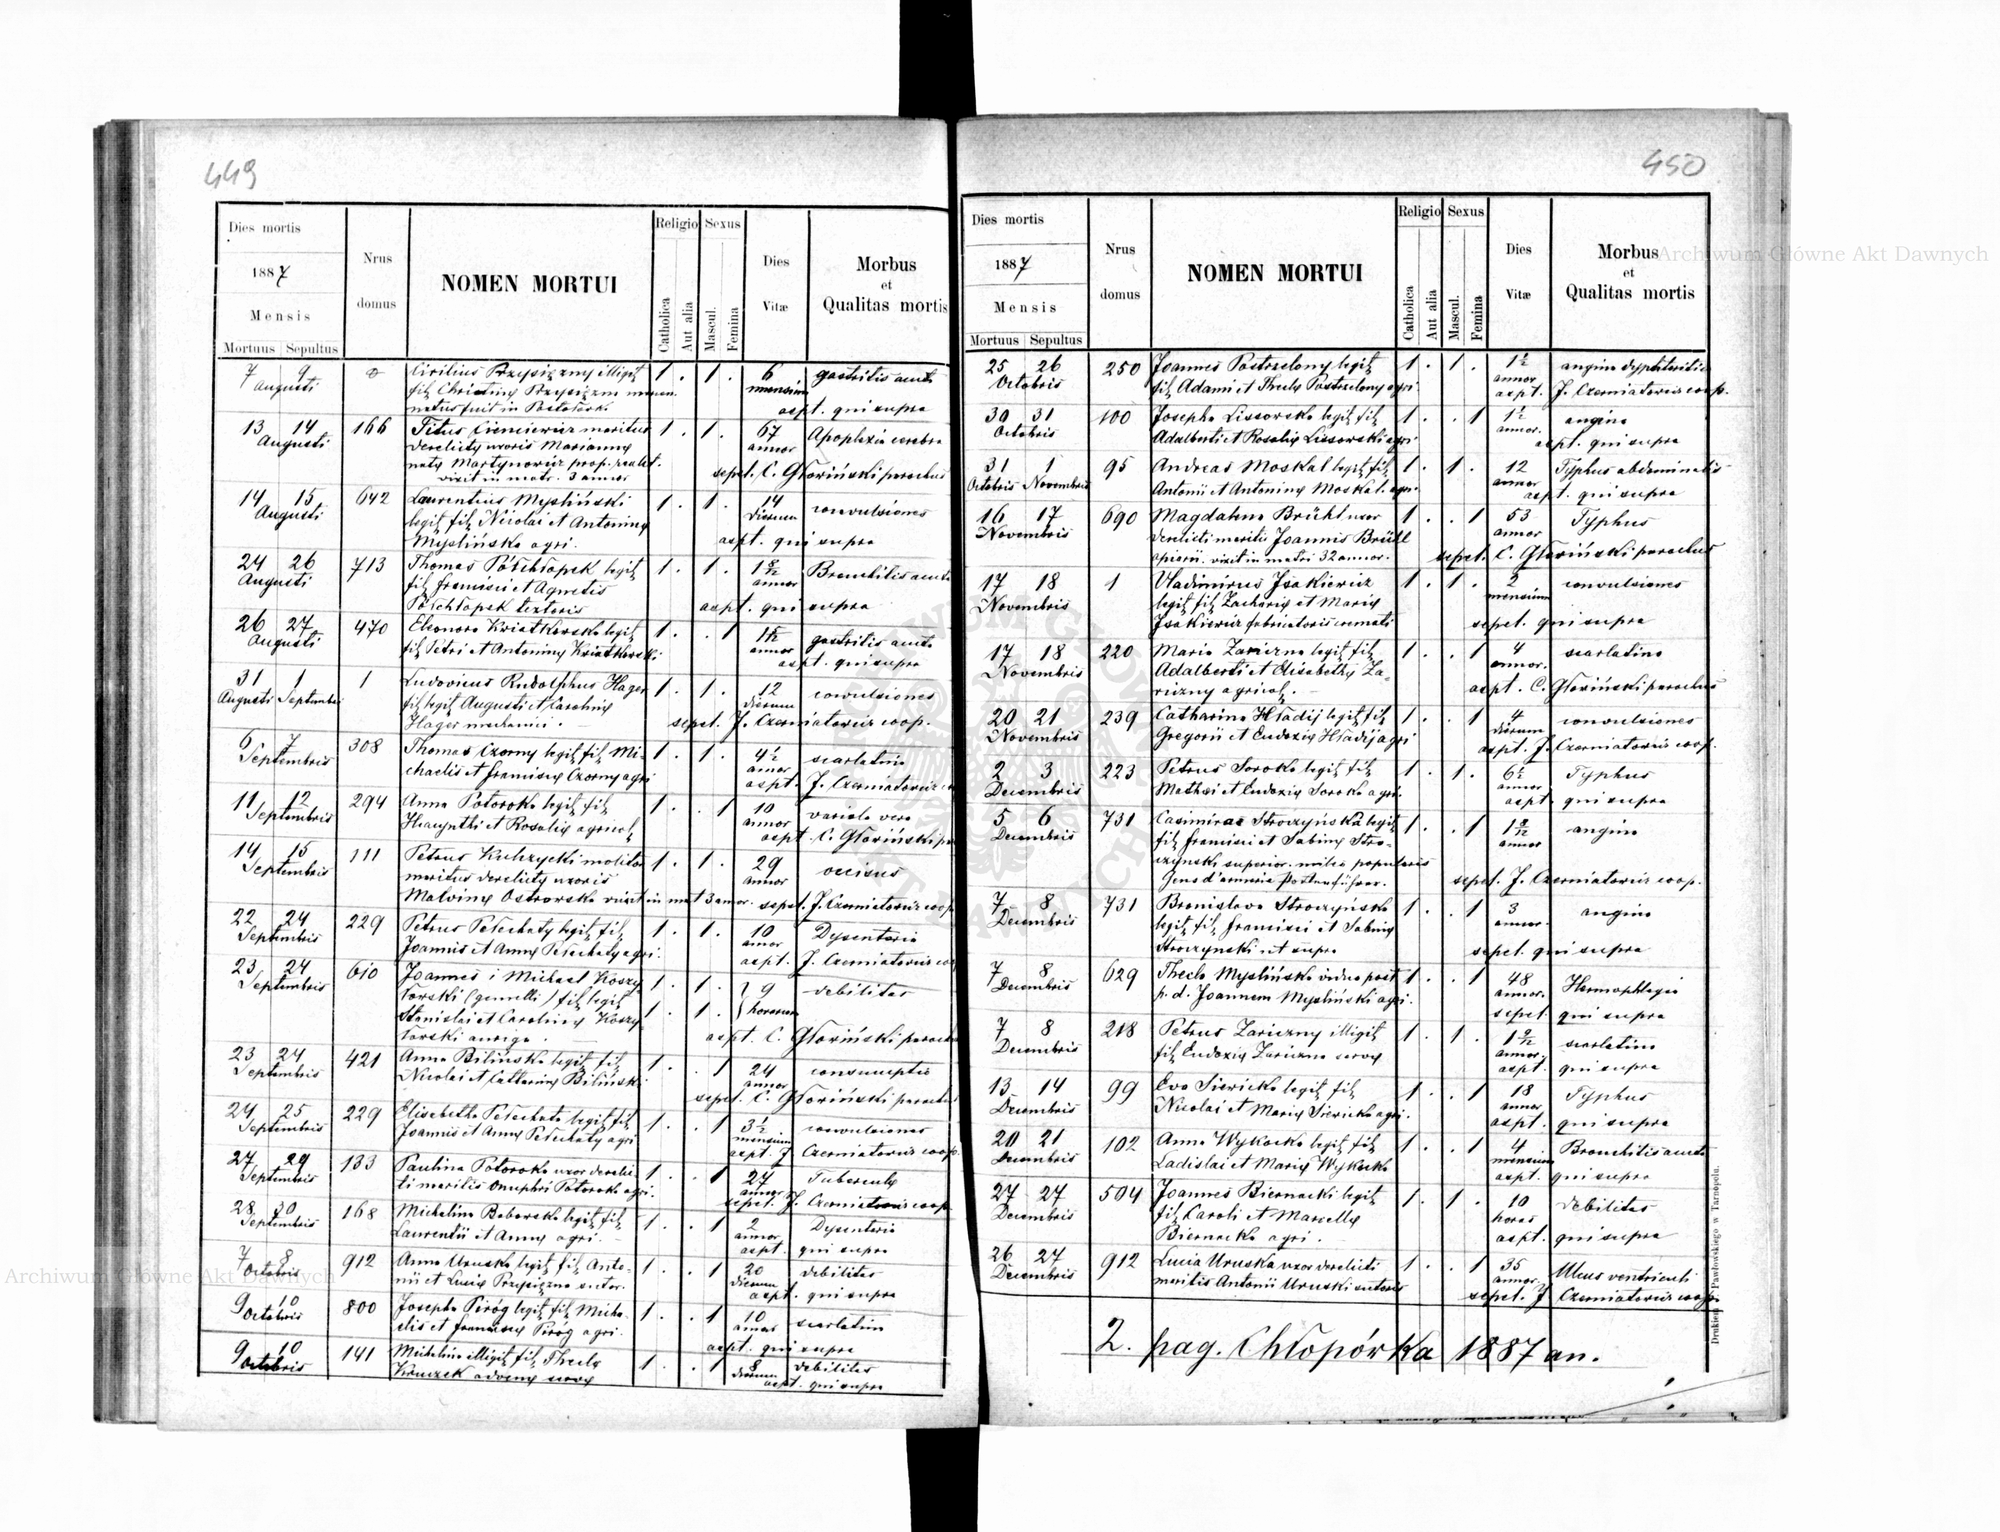 449
Dies mortis
1887
Mensis
Mortuus Sepultus
Nrus domus
NOMEN MORTUI
Religio
Catholica
Aut alia
Sexus
Mascul.
Femina
Dies Vitæ
Morbus
et
Qualitas mortis
7 9 Augusti
Przysiężny illegit
6 mensium gastritis acuta
aspt. qui supra
13 14 Augusti 166 Titus maritus
derelictę uxoris Mariannę
natę Martynowicz
vixit in matr. 3 annos
67 annor Apoplexia cerebri
sepel. C. Głowiński parochus
14 15 Augusti 642 Laurentius Mysliński
legit fil Nicolai et Antoninę
Myslińska agri.
14 dierum convulsiones
aspt. qui supra
24 26 Augusti 713 Thomas Półchłopek legit
fil Francisci et Agnetis
Półchłopek textoris
1 8/12 annor Bronchitis acuta
aspt. qui supra
26 27 Augusti 470 Eleonora Kwiatkowska legit
fil Petri et Antoninę Kwiatkowski
gastritis acuta
aspt. qui supra
31 Augusti 1 Septembri 1 Ludovicus Rudolphus Hager
fil legit Augusti et Carolinę
Hager mechanici.
12 dierum convulsiones
sepel. J. Czerniatowicz coop.
6 7 Septembris 308 Thomas Czorny legit fil Mi-
chaelis et Franciscę Czorny agri
4½ annor scarlatina
aspt. J. Czerniatowicz
11 12 Septembris 294 Anna Potoroka legit fil
Hiacynthi et Rosalię agricol
10 annor variola vera
aspt C. Głowiński
14 15 Septembris 111 Petrus Kulczycki molitor
maritus derelictę uxoris
Malvinę Ostrowska vixit in mat 3 annor.
29 annor occisus
sepel. J. Czerniatowicz coop
22 24 Septembris 229 Petrus Pełechaty legit fil
Joannis et Annę Pełechaty agri.
10 annor Dysenteria
aspt. J. Czerniatowicz
23 24 Septembris 610 Joannes i Michael Koszy-
łowski (gemelli) fil legit
Stanislai et Carolinę Koszy-
łowski auriga.
9 horarum debilitas
aspt. C. Głowiński parochus
23 24 Septembris 421 Anna Bilińska legit fil
Nicolai et Catharinę Biliński
24 annor consumptio
sepel. C. Głowiński parochus
24 25 Septembris 229 Elisabetha Pełechata legit fil
Joannis et Annę Pełechaty agri
3½ mensium convulsiones
aspt. J Czerniatowicz coop.
27 29 Septembris 133 Paulina Potoroka uxor derelic-
ti maritis Onuphri Potoroka agri.
27 annor Tuberculę
sepel. J. Czerniatowicz coop.
28 30 Septembris 168 Michalina Boborska legit fil
Laurentii et Annę agri.
2 annor Dysenteria
aspt. qui supra
7 8 Octobris 912 Anna Uruska legit fil Anto-
nii et Lucię Przysiężna sutor.
20 dierum debilitas
aspt. qui supra
9 10 Octobris 800 Josepha Piróg legit fil Micha-
elis et Franciscę Piróg agri.
10 annor scarlatina
aspt. qui supra
9 10 Octobris 141 Michalina illegit fil Theclę
Kruczek advenę
8 dierum debilitas
aspt. qui supra
450
Dies mortis
1887
Mensis
Mortuus Sepultus
Nrus domus
NOMEN MORTUI
Religio
Catholica
Aut alia
Sexus
Mascul.
Femina
Dies Vitæ
Morbus
et
Qualitas mortis
25 26 Octobris 250 Joannes Postrzelony legit
fil Adami et Theclę Postrzelony agri
1½ annor angina dyphteritis
aspt. J. Czerniatowicz coop.
30 31 Octobris 100 Josepha Lissowska legit fil
Adalberti et Rosalię Lissowski agri
1½ annor. angina
aspt. qui supra
31 Octobris 1 Novembris 95 Andreas Moskal legit fil
Antonii et Antoninę Moskal. agri
12 annor Typhus abdominalis
aspt. qui supra
16 17 Novembris 690 Magdalena Brühl uxor
derelicti maritis Joannis Brühl
apiarii. vixit in matri 32 annor.
53 annor Typhus
sepel. C. Głowiński parochus
17 18 Novembris 1 Vladimirus Isakiewicz
legit fil Zacharię et Marię
Isakiewicz fabricatoris cremati
2 mensium convulsiones
sepel. qui supra
17 18 Novembris 220 Maria Zariczna legit fil
Adalberti et Elisabethę Za-
riczny agricol.
4 annor. scarlatina
aspt. C. Głowiński parochus
20 21 Novembris 239 Catharina Hładij legit fil
Gregorii et Eudoxię Hładij agri
4 dierum convulsiones
aspt. J. Czerniatowicz coop.
2 3 Decembris 223 Petrus Soroka legit fil
Mathei et Eudoxię Soroka agri.
6½ annor Typhus
aspt. qui supra
5 6 Decembris 731 Casimirae Stroczyńska legit
fil Francisci et Sabinę Stro-
czynski superior. milic popularis
Gens d'armerie Postenführer.
1 8/12 annor angina
sepel. J. Czerniatowicz coop.
7 8 Decembris 731 Bronislava Stroczyńska
legit fil Francisci et Sabinę
Stroczynski ut supra
3 annor. angina
sepel. qui supra
7 8 Decembris 629 Thecla Myslińska vidua post
p. d. Joannem Mysliński agri.
48 annor. Hemophtysis
sepel. qui supra
7 8 Decembris 218 Petrus Zariczny illegit
fil Eudoxię Zariczna
scarlatina
aspt. qui supra
13 14 Decembris 99 Eva Siewicka legit fil
Nicolai et Marię Siewicka agri.
18 annor Typhus
aspt. qui supra
20 21 Decembris 102 Anna Wykocka legit fil
Ladislai et Marię Wykocka
4 mensium Bronchitis acuta
aspt. qui supra
27 27 Decembris 504 Joannes Biernacki legit
fil Caroli et Marcellę
Biernacka agri.
10 horas debilitas
aspt. qui supra
26 27 Decembris 912 Lucia Uruska uxor derelicti
maritis Antonii Uruski sutoris
35 annor. Ulcus ventriculi
sepel. J Czerniatowicz coop.
2. pag. Chłopówka 1887 an.
Pawłowskiego w Tarnopolu.
Archiwum Główne Akt Dawnych
Archiwum Główne Akt Dawnych